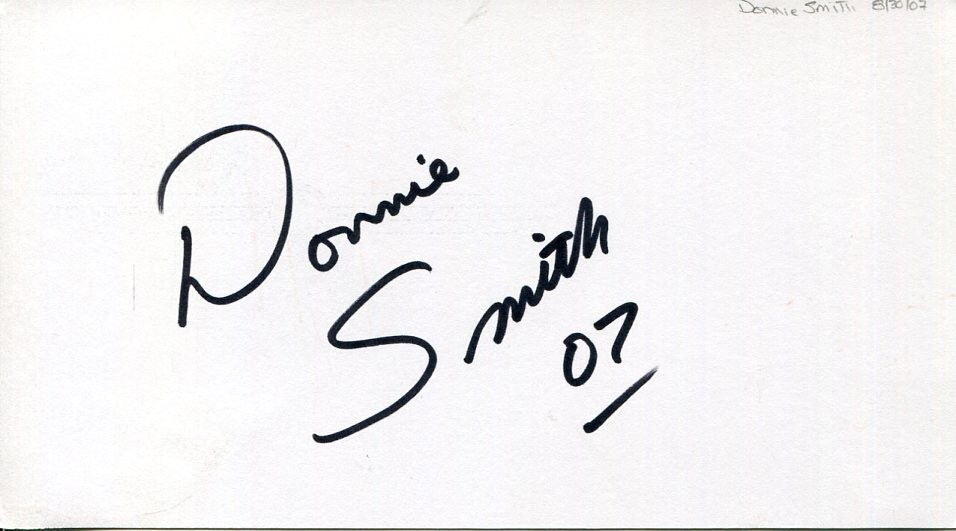 Donnie Smith 8/30/07
Donnie
Smith
07